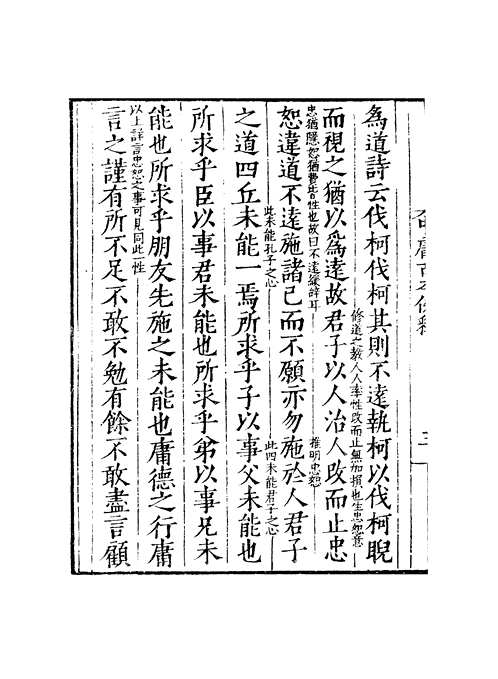 為道詩云伐柯伐柯其則不遠執柯以伐柯睨
修道之教人人率性改而止無加損也生忠恕意
而視之猶以為遠故君子以人治人改而止忠
忠猶隱恕猶費皆性也故曰不遠緩辭耳
推明忠恕
恕違道不遠施諸己而不願亦勿施於人君子
此未能孔子之心
此四未能君子之心
之道四丘未能一焉所求乎子以事父未能也
所求乎臣以事君未能也所求乎弟以事兄未
能也所求乎朋友先施之未能也庸德之行庸
以上詳言忠恕之事可見同此一性
言之謹有所不足不敢不勉有餘不敢盡言顧